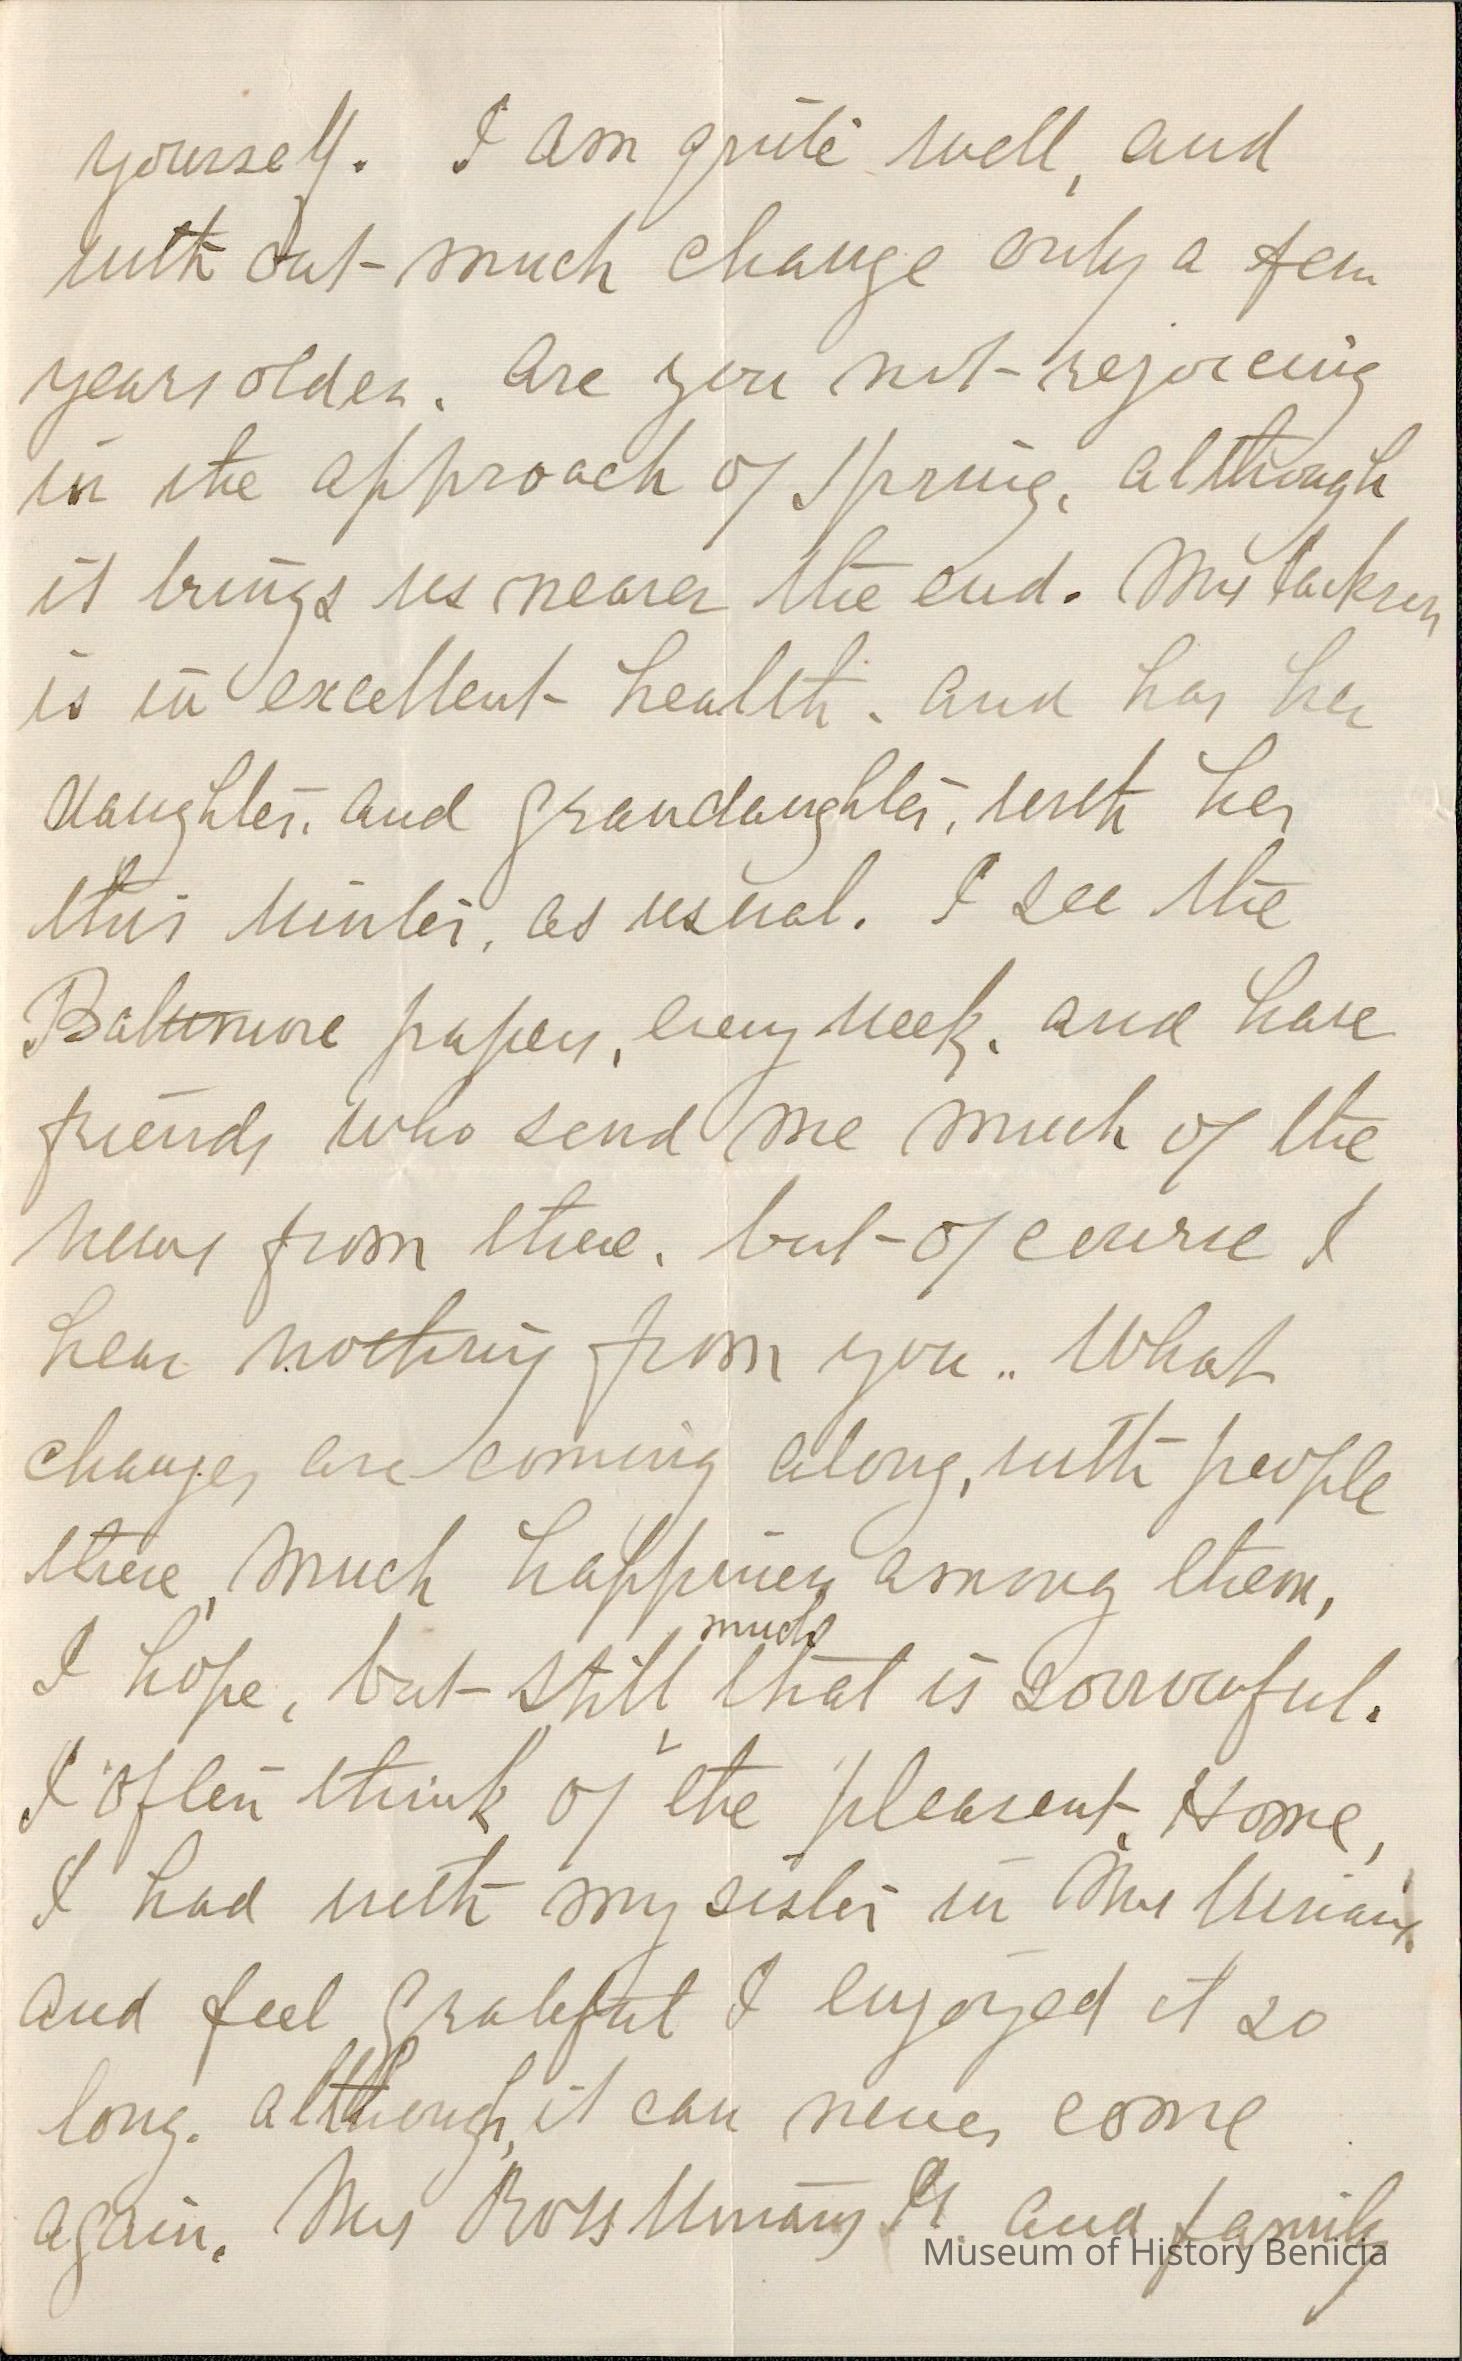 yourself. I am quite well, and
with out much change only a few
years older. Are you not rejoiceing
in the approach of Spring, although
it brings us nearer the end. Mrs Jackson
is in excellent health. and has her
daughter, and grandaughter, with her
this winter, as usual. I see the
Baltimore papers, every week, and have
friends who send me much of the
news from there, but of course I
hear nothing from you.. What
changes are coming along, with people
there, much happiness among them,
I hope, but still, much that is sorrowful.
I often think of the pleasent, Home,
I had with my sister in Mrs
and feel grateful I enjoyed it so
long. although, it can never come
again. Mrs Ross and family
Museum of History Benicia